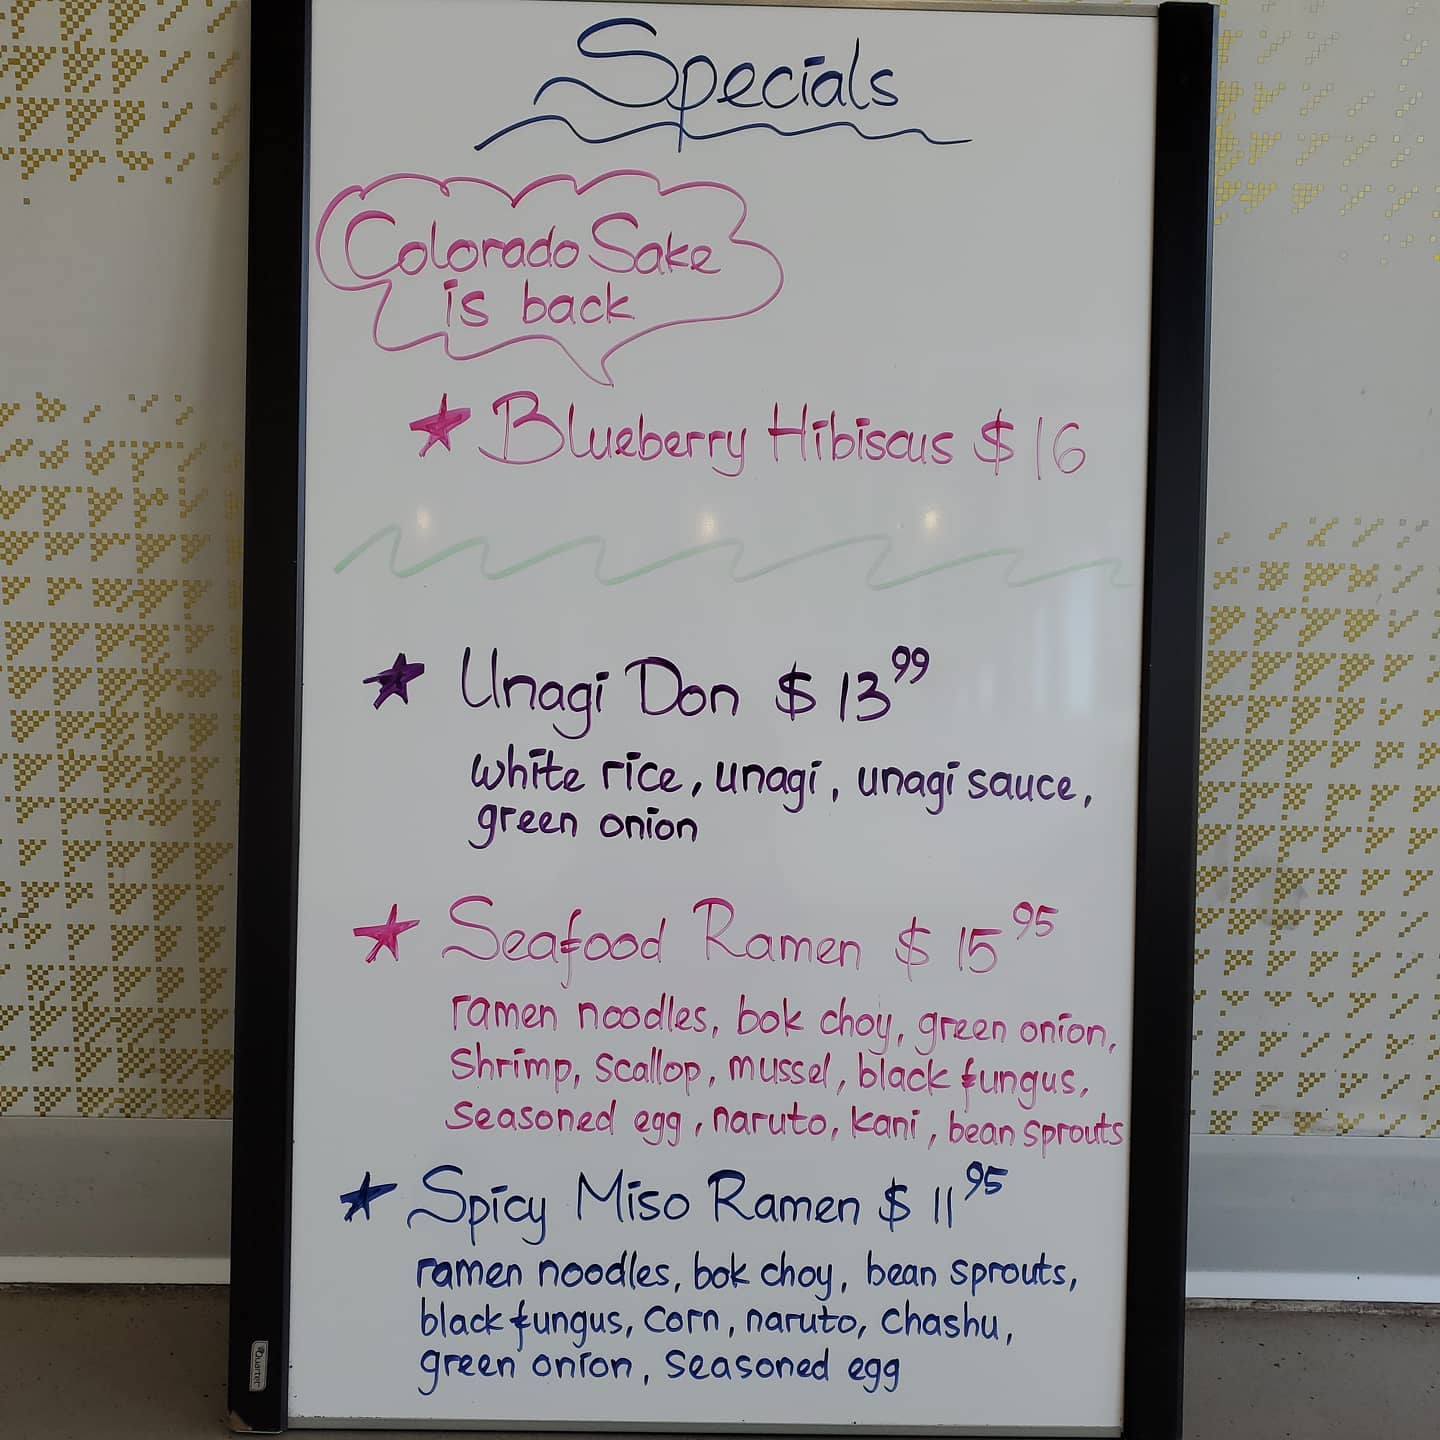 Specials
Colorado Sake
is back
Blueberry Hibiscus $16
Unagi Don $13.99
white rice, unagi, unagi sauce,
green onion
Seafood Ramen $15.95
ramen noodles, bok choy, green onion,
Shrimp, scallop, mussel, black fungus,
seasoned egg, naruto, kani, bean sprouts
Spicy Miso Ramen $11.95
ramen noodles, bok choy, bean sprouts,
black fungus, corn, naruto, chashu,
green onion, seasoned egg
Quartet